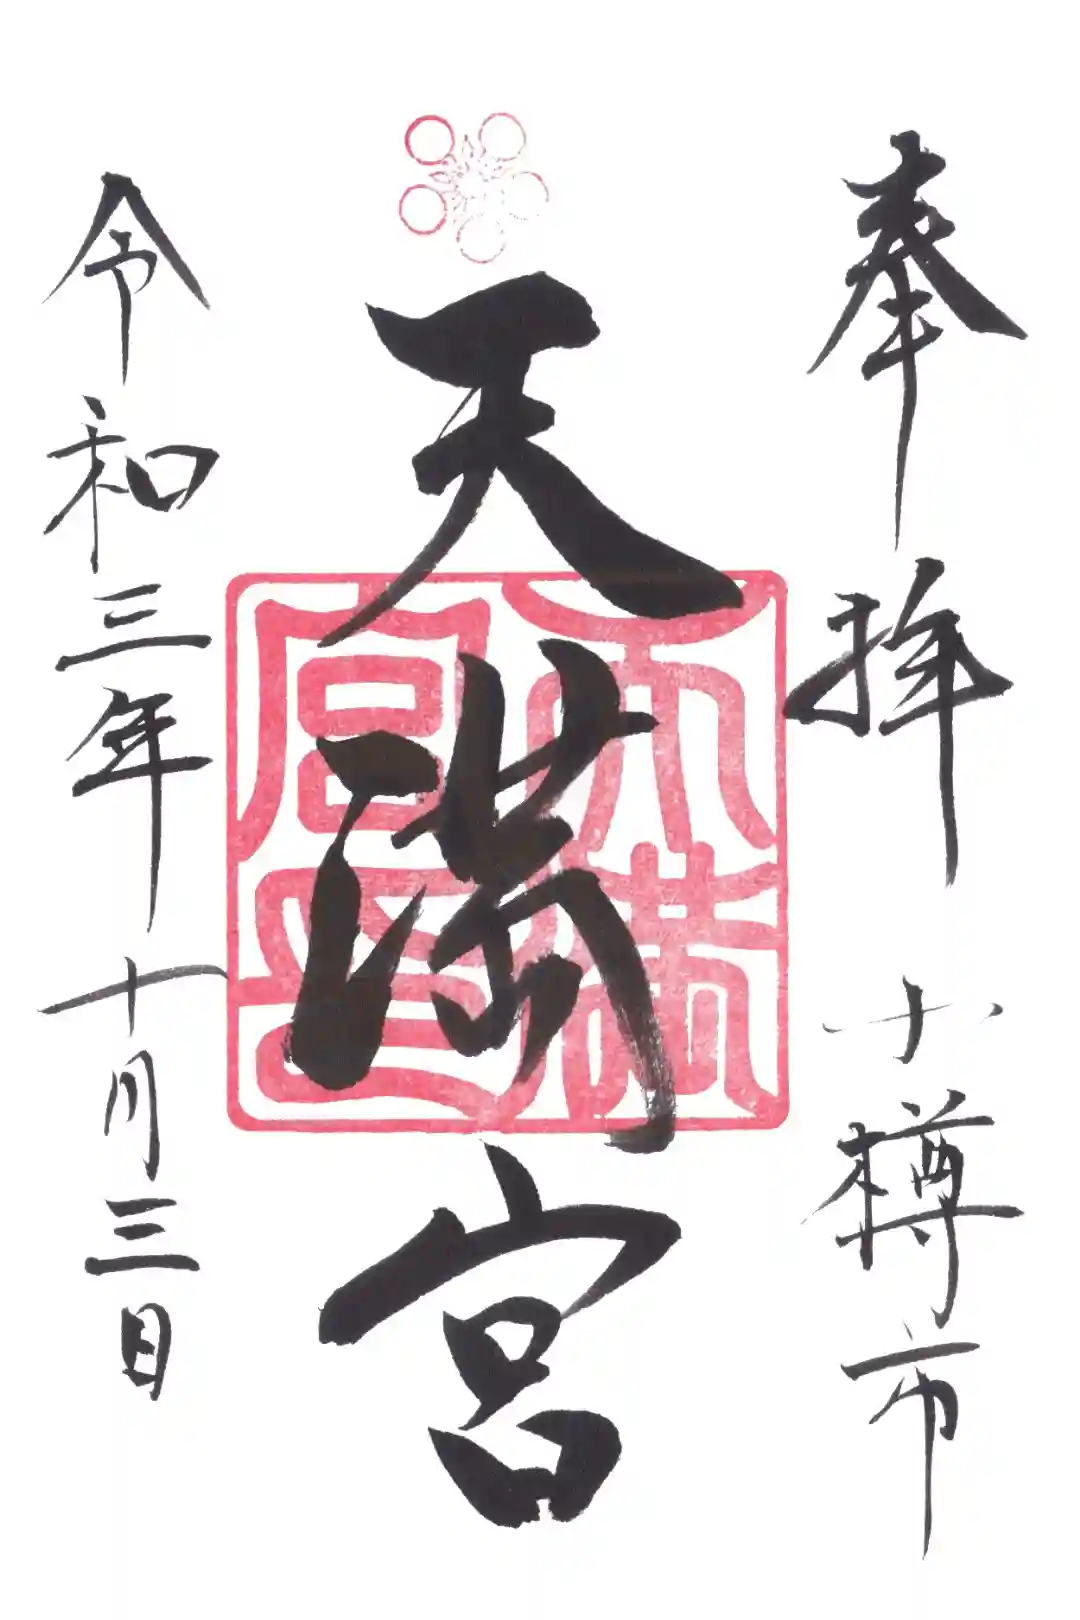 奉拝 小樽市
天満宮
天満宮印
令和三年十月三日